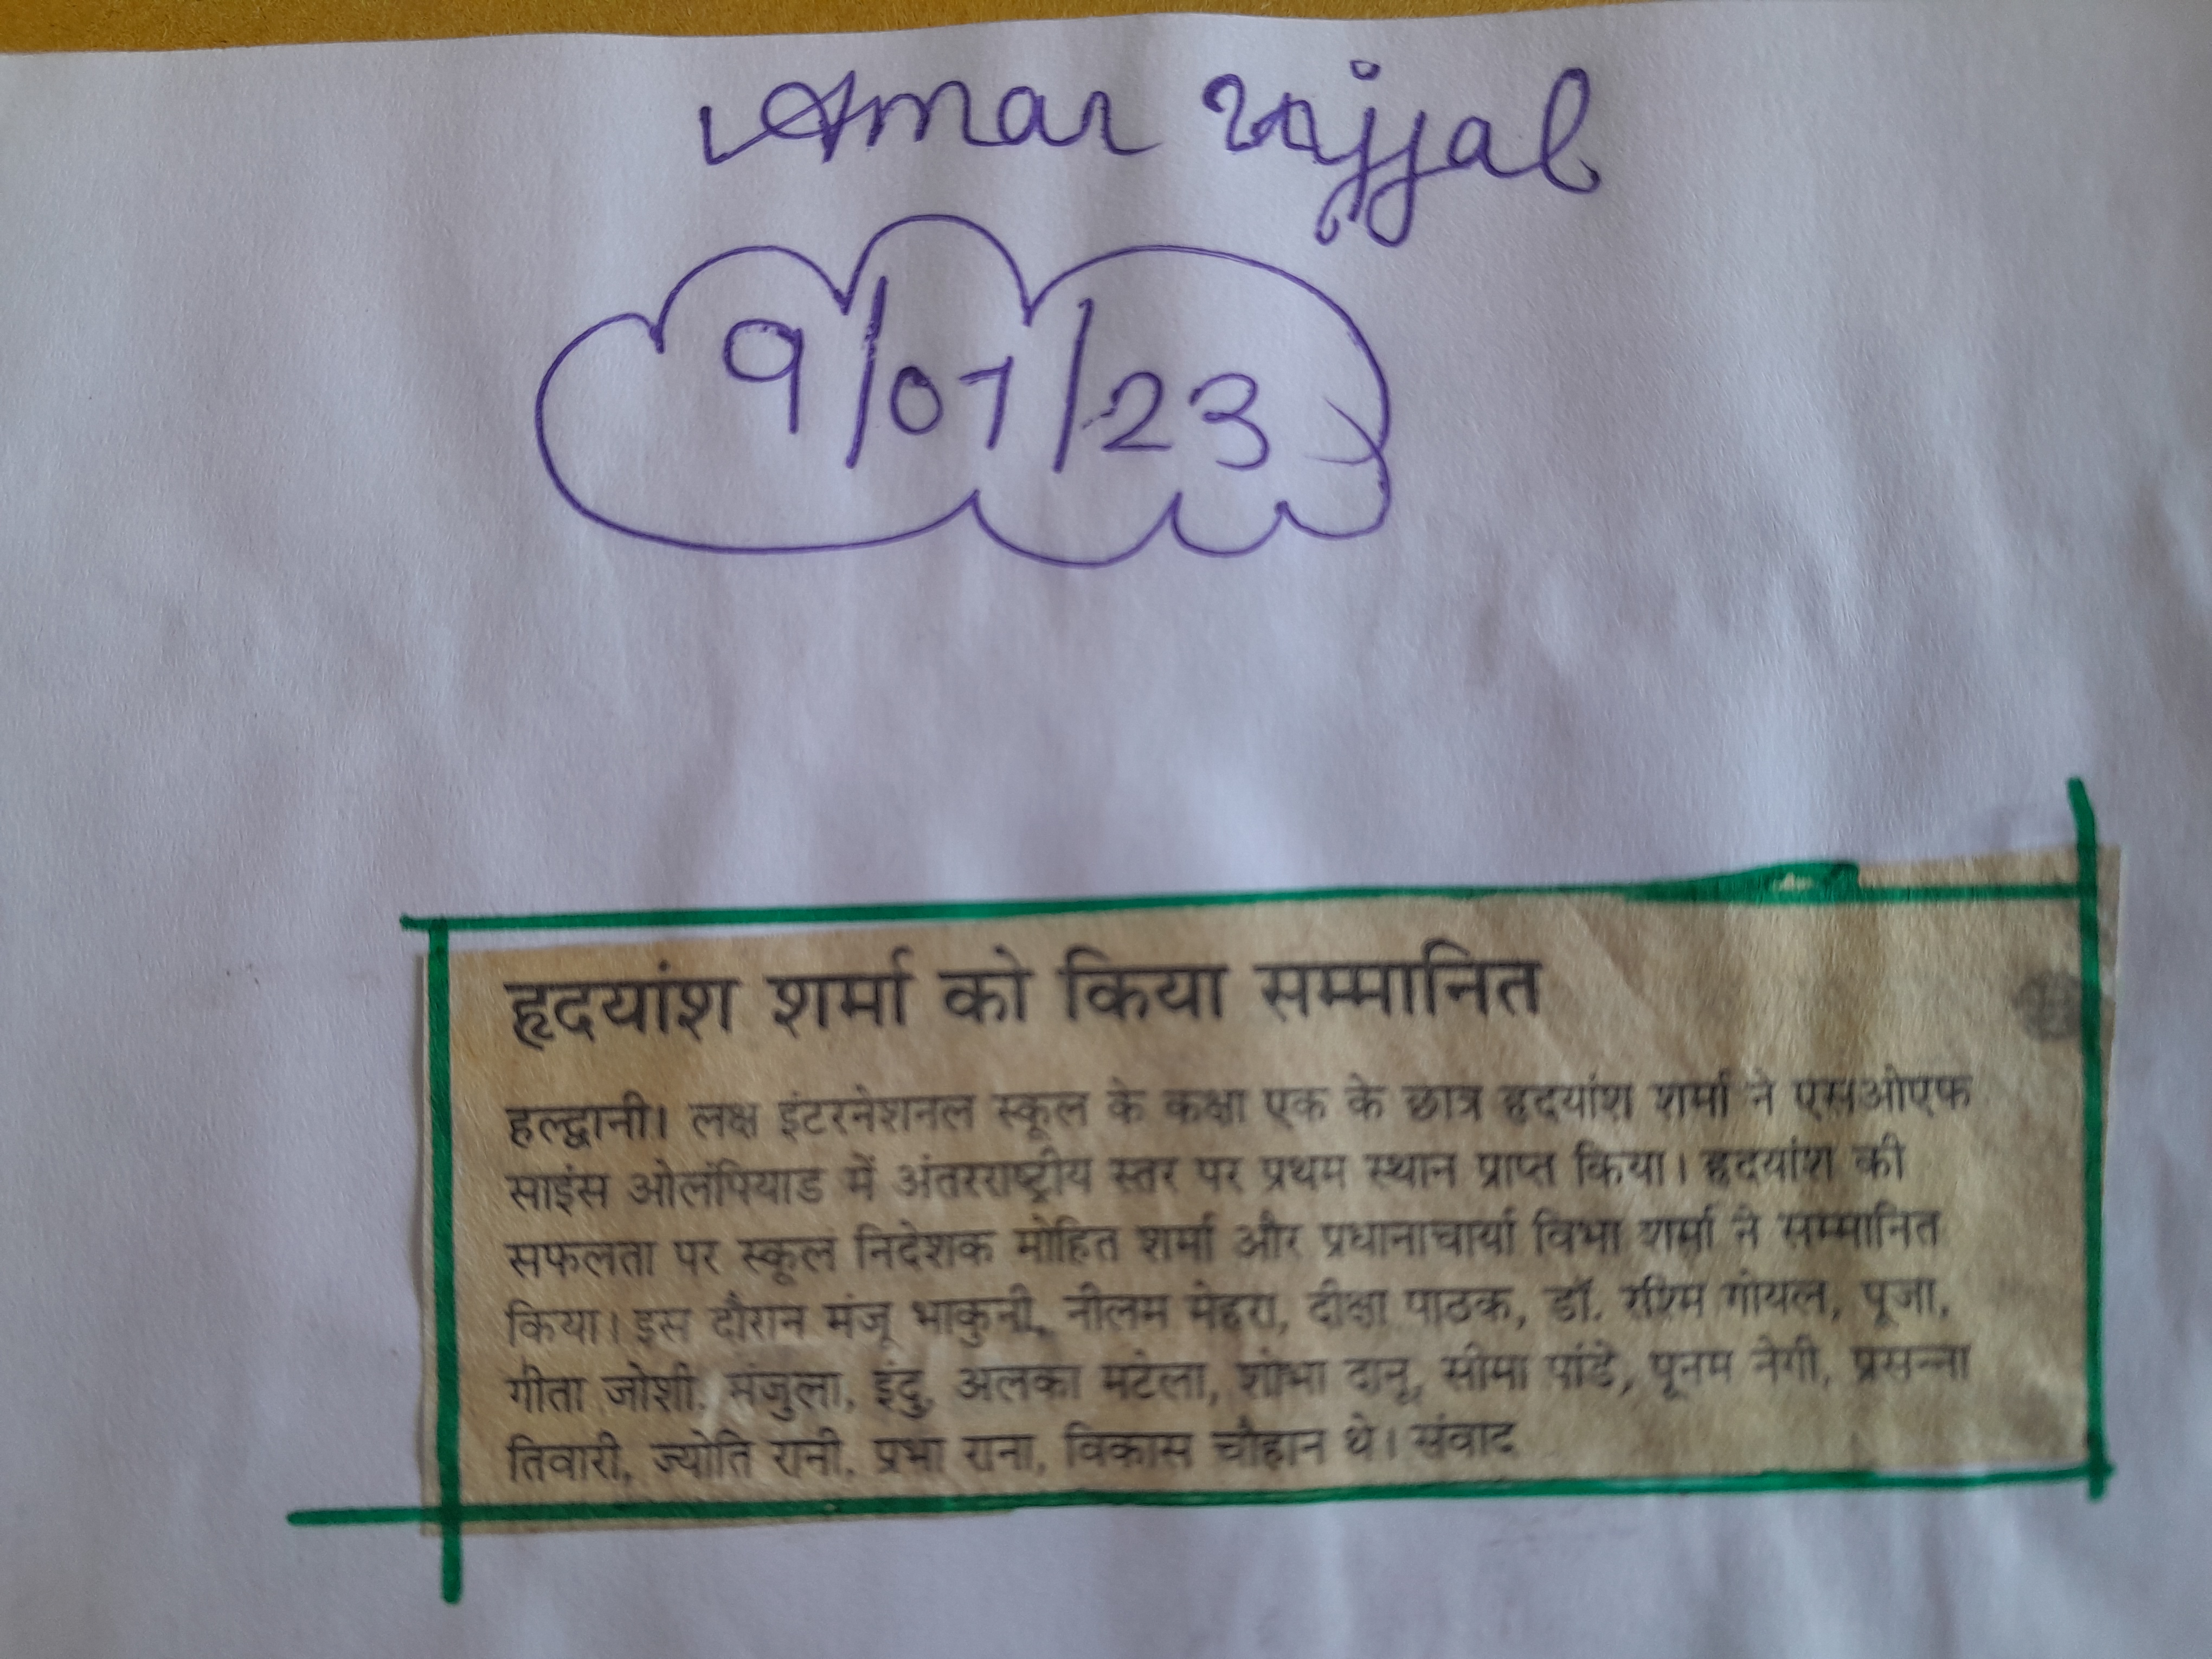 Amar Ujjal
9/07/23
हृदयांश शर्मा को किया सम्मानित
हल्द्वानी। लक्ष इंटरनेशनल स्कूल के कक्षा एक के छात्र हृदयांश शर्मा ने एसओएफ
साइंस ओलंपियाड में अंतरराष्ट्रीय स्तर पर प्रथम स्थान प्राप्त किया। हृदयांश की
सफलता पर स्कूल निदेशक मोहित शर्मा और प्रधानाचार्या विभा शर्मा ने सम्मानित
किया। इस दौरान मंजू भाकुनी, नीलम मेहरा, दीक्षा पाठक, डॉ. रश्मि गोयल, पूजा,
गीता जोशी, मंजुला, इंदु, अलका मटेला, शोभा दानू, सीमा पांडे, पूनम नेगी, प्रसन्ना
तिवारी, ज्योति रानी, प्रभा राना, विकास चौहान थे। संवाद